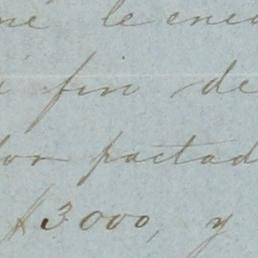 le
fin de
por pactad
$3000, y